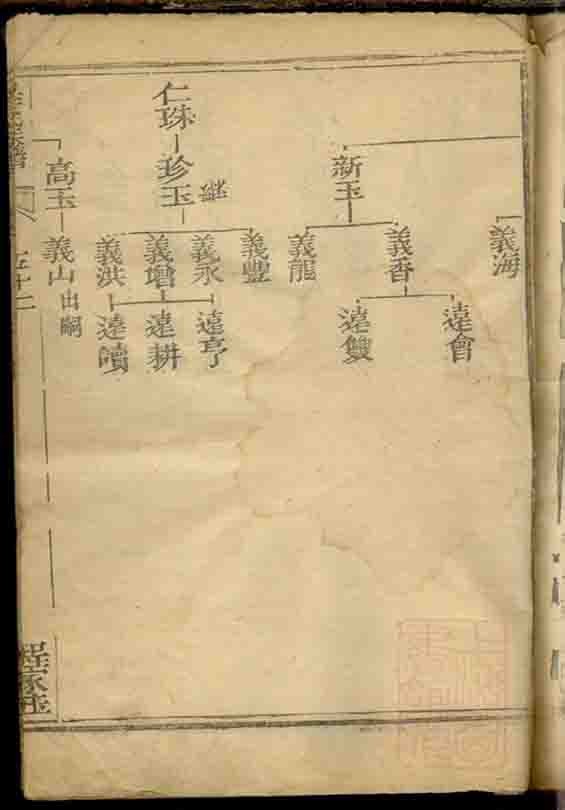 義海
新玉
義香
義龍
遠會
遠雙
仁珠
珍玉 繼
義豐
義永
義增
義洪
遠亨
遠耕
遠
高玉
義山 出嗣
五十二